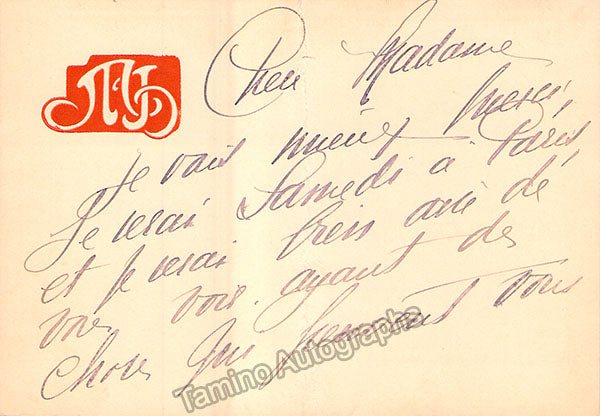 Chère Madame
Je vais mieux merci,
Je serai Samedi à Paris,
et je serai bien aise de
vous voir. ayant des
choses qui peuvent vous
Tamino Autographs